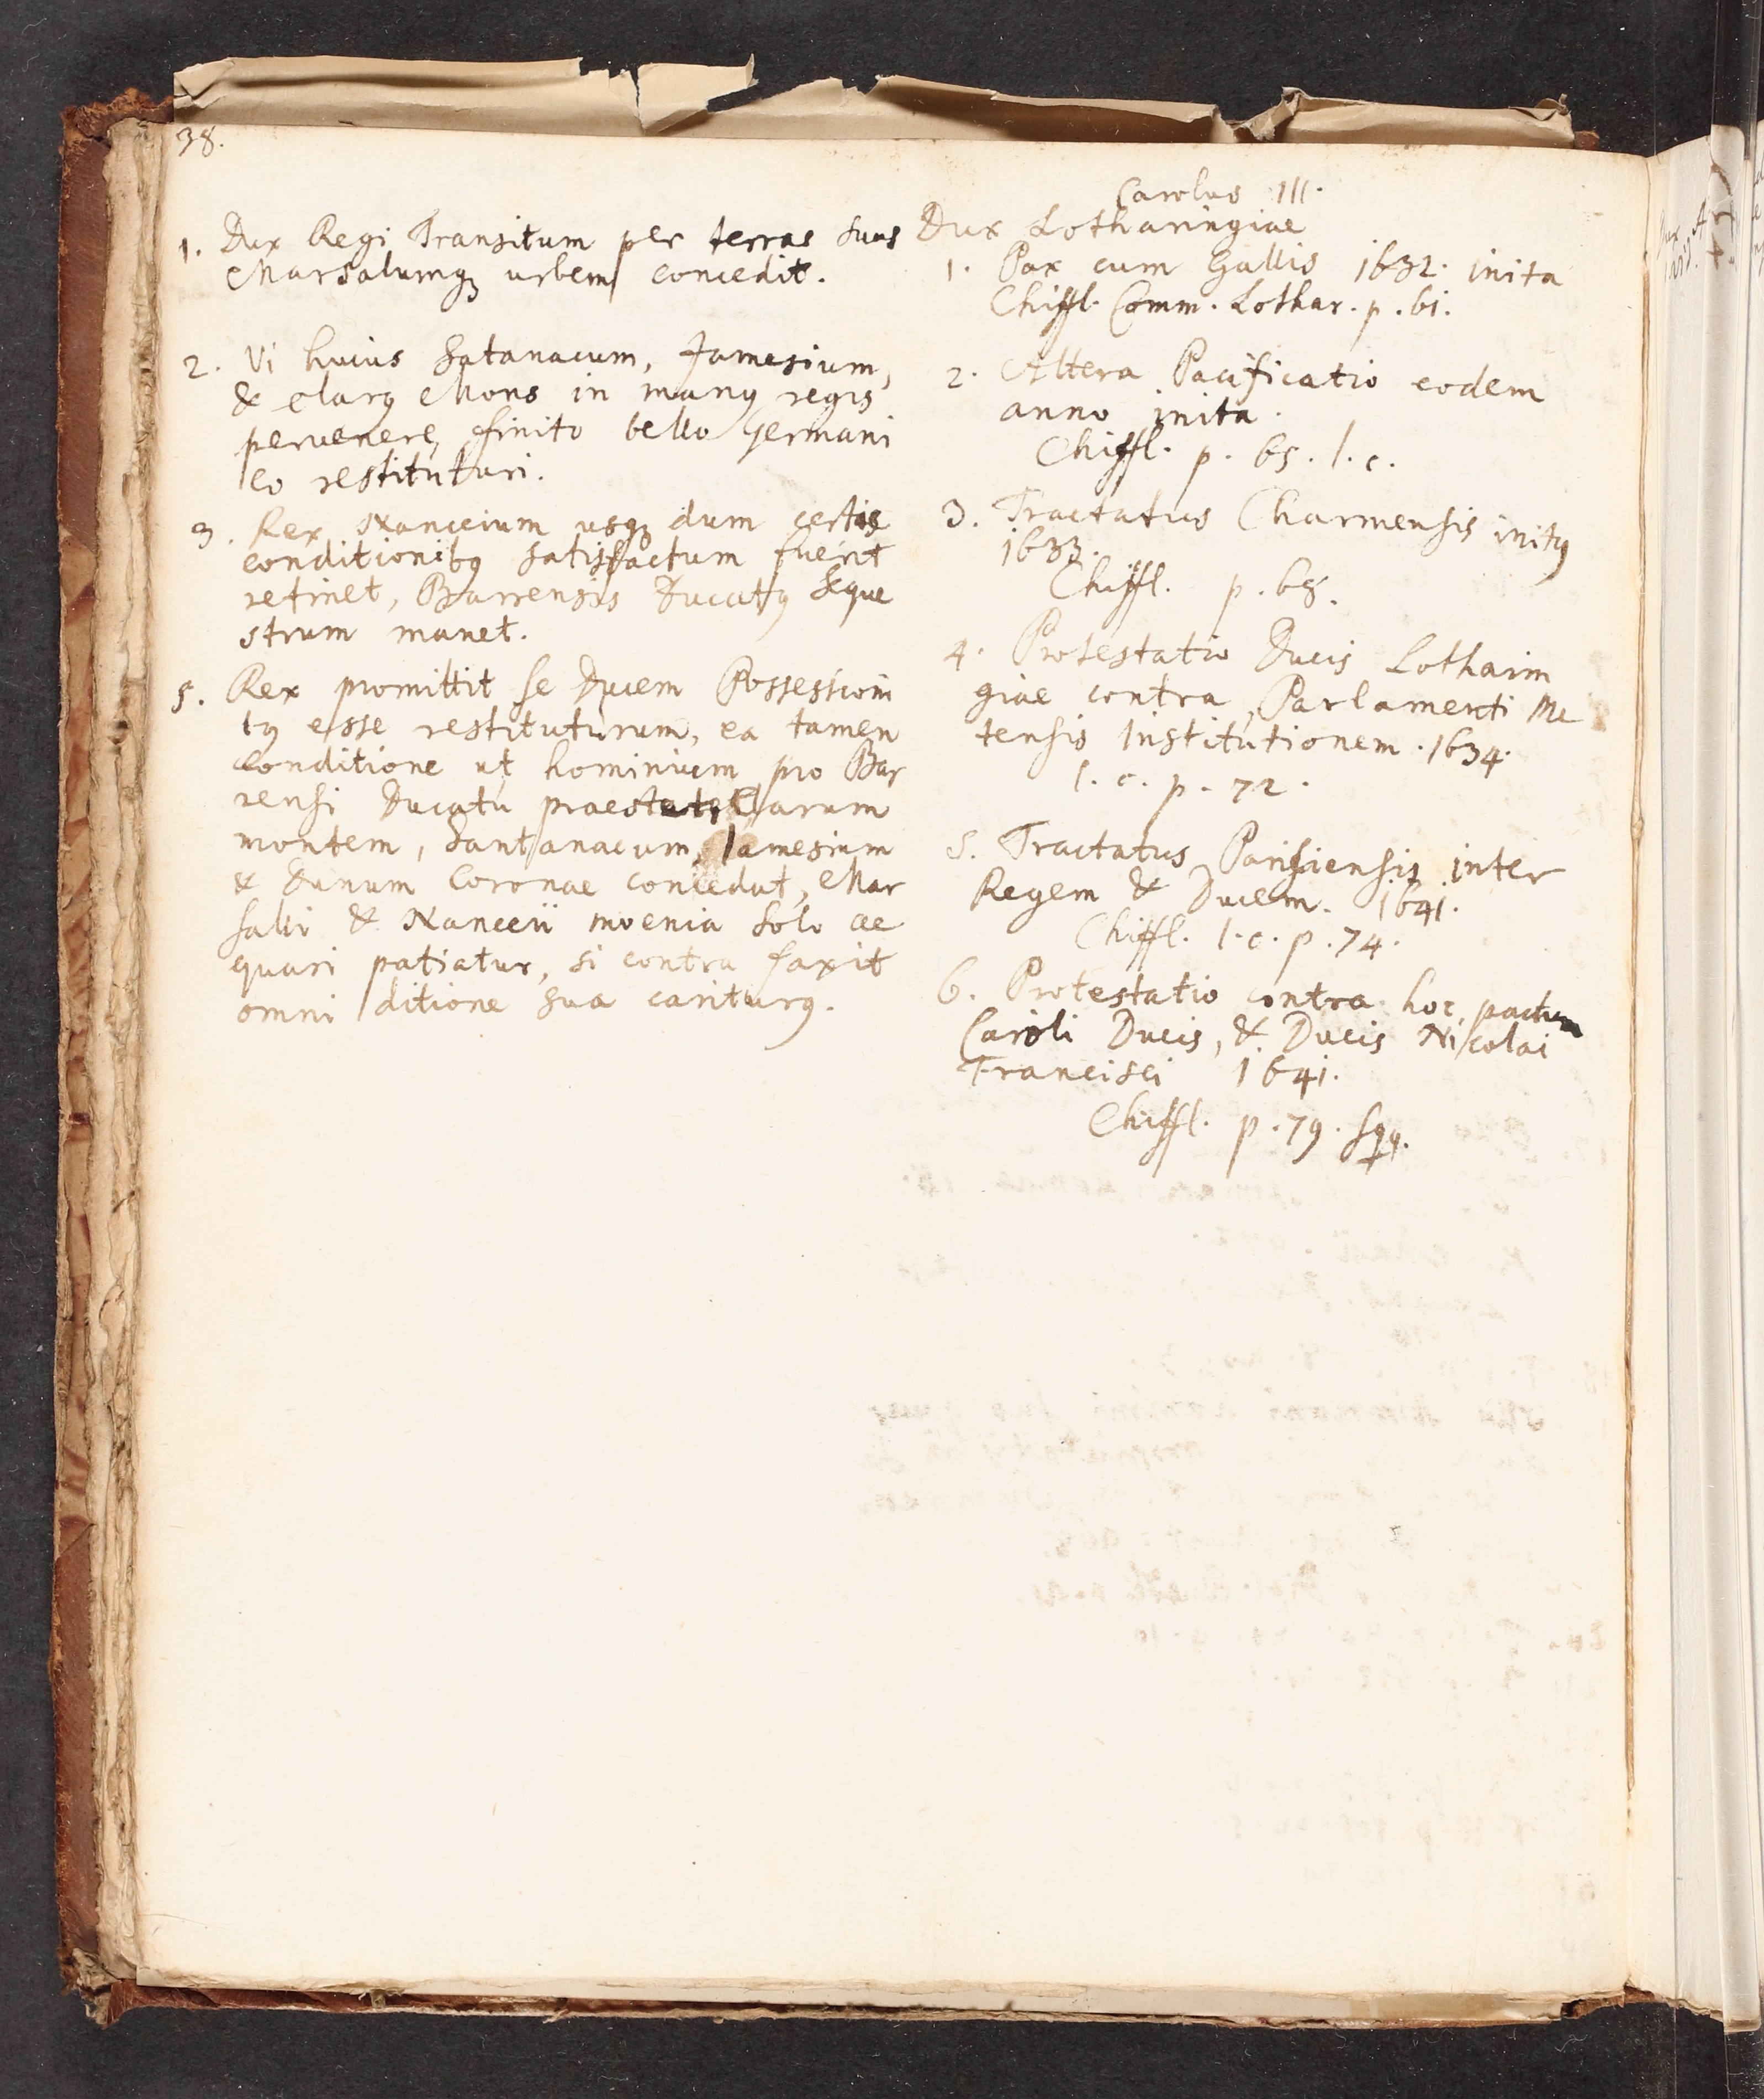 38.
1. Dux Regi Transitum per terras suas
Marsalumq; urbem concedit.
2. Vi huius Satanacum, Jamesium,
& clarꝰ Mons in manꝰ regis
pervenere, finito bello Germani
co restituturi.
3. Rex Nanceium usq; dum certis
conditionibꝰ satisfactum fuerit
retinet, Barrensis Ducatꝰ seque
strum manet.
5. Rex promittit se Ducem Possessioni
bꝰ esse restituturum, ea tamen
conditione ut hominium pro Bar
rensi Ducatu praestet, Clarum
montem, Santanacum, Iamesium
& Dunum Coronae concedat, Mar
salli & Nanceii moenia solo ae
quari patiatur, si contra faxit
omni ditione sua cariturꝰ.
Carolus III.
Dux Lotharingiae
1. Pax cum Gallis 1632. inita
Chiffl. Comm. Lothar. p. 61.
2. Altera Pacificatio eodem
anno inita.
Chiffl. p. 65. l. c.
3. Tractatus Charmensis initꝰ
1633.
Chiffl. p. 68.
4. Protestatio Ducis Lotharin
giae contra Parlamenti Me
tensis Institutionem. 1634.
l. c. p. 72.
5. Tractatus Parisiensis inter
Regem & Ducem. 1641.
Chiffl. l. c. p. 74.
6. Protestatio contra hoc pactum
Caroli Ducis, & Ducis Nicolai
Francisci 1641.
Chiffl. p. 79. sqq.